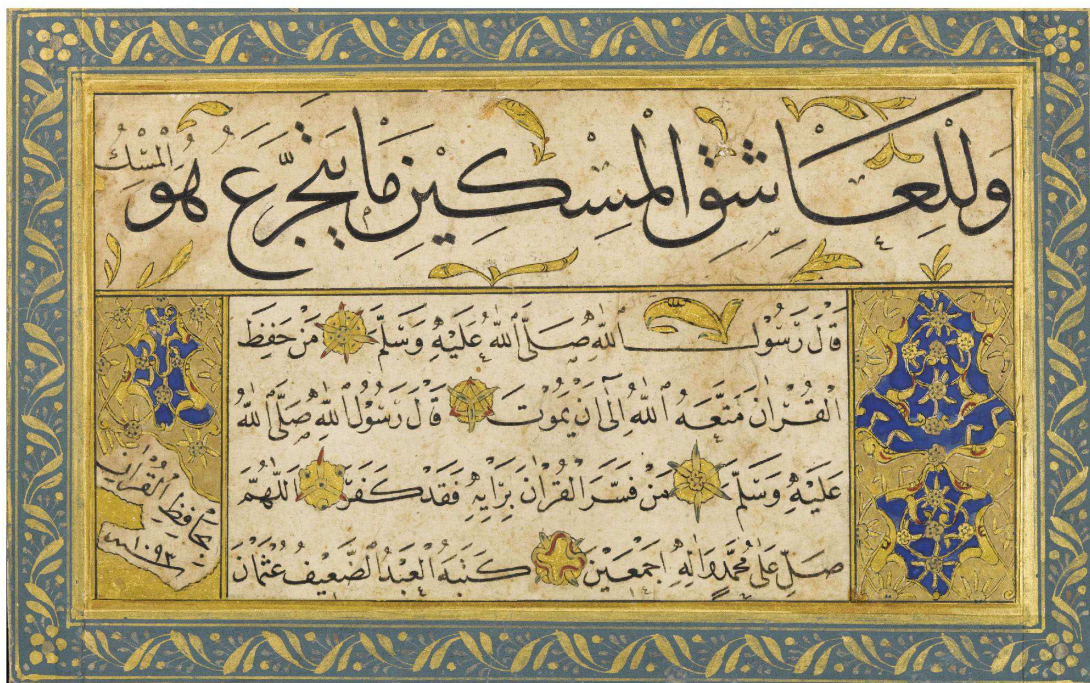 وَلِلْعَاشِقِ الْمِسْكِينِ مَا يَتَجَرَّعُ هُو الْمِسْكُ
قَالَ رَسُولُ اللّٰهِ صَلَّى اللّٰهُ عَلَيْهِ وَسَلَّمَ مَنْ حَفِظَ
الْقُرْاٰنَ مَتَّعَهُ اللّٰهُ اِلٰٓى اَنْ يَمُوتَ قَالَ رَسُولُ اللّٰهِ صَلَّى اللّٰهُ
عَلَيْهِ وَسَلَّمَ مَنْ فَسَّرَ الْقُرْاٰنَ بِرَايِهِ فَقَدْ كَفَرَ اَللّٰهُمَّ
صَلِّ عَلٰى مُحَمَّدٍ وَاٰلِهِ اَجْمَعِينَ كَتَبَهُ الْعَبْدُ الضَّعِيفُ عُثْمَانُ
بحافظ القران
١٠٩٣